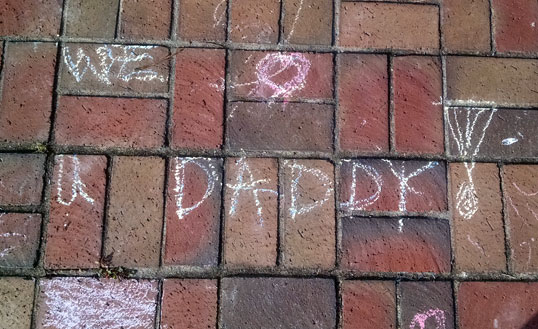 WE
u DADDY!